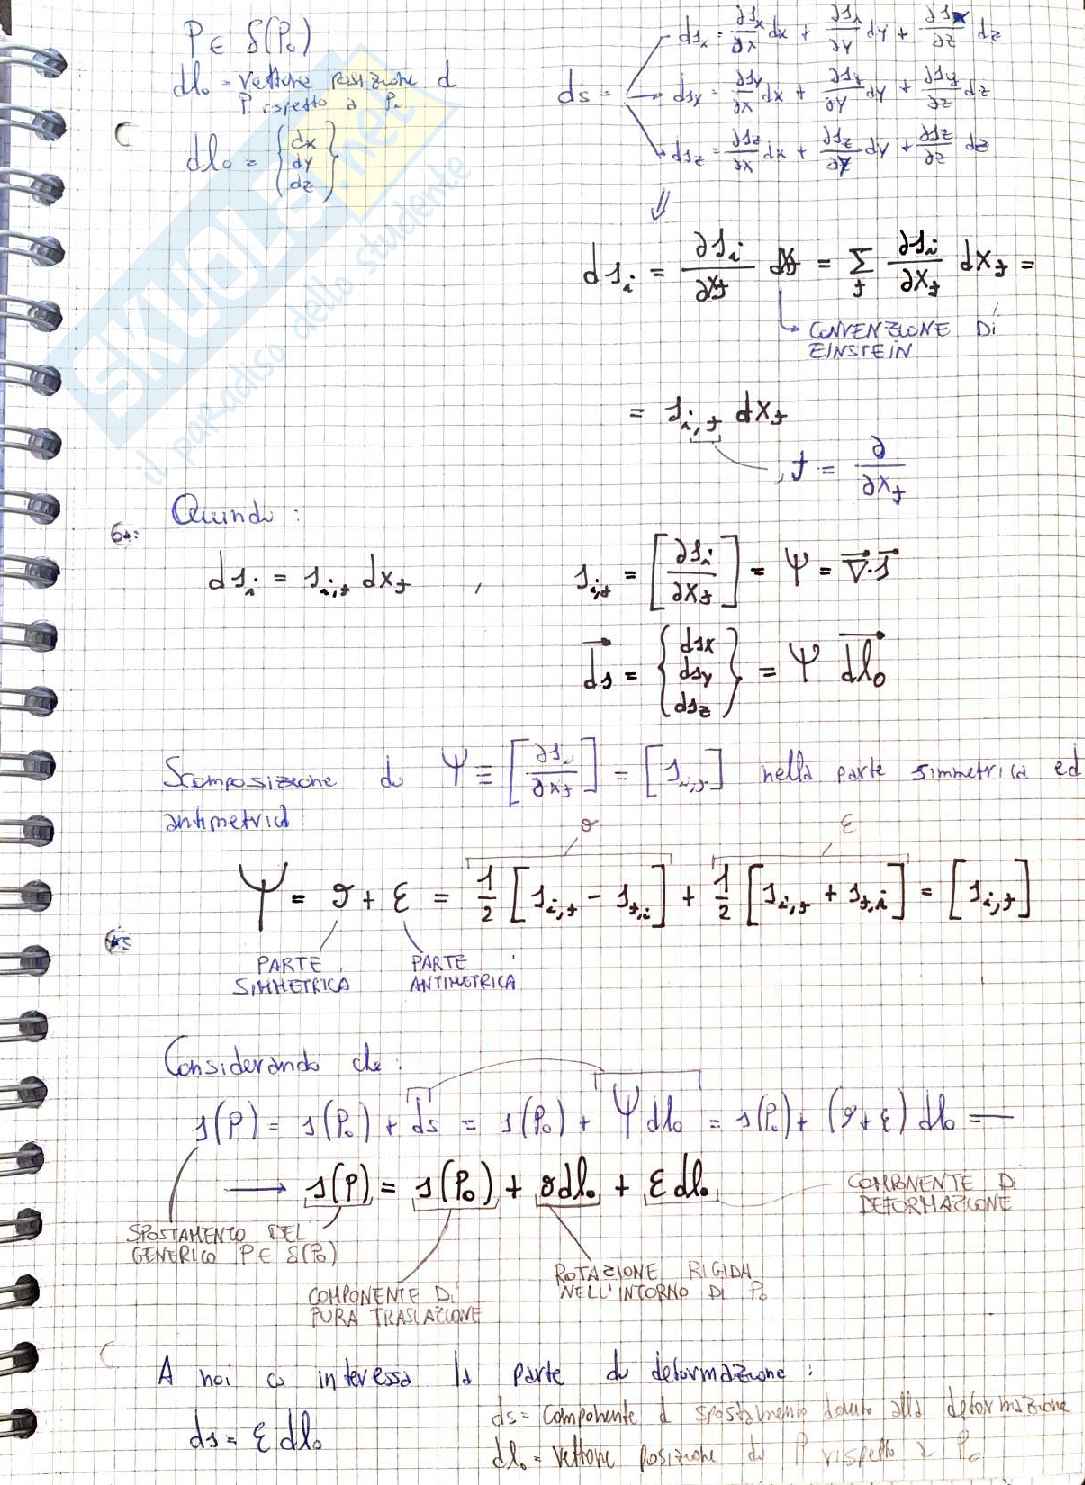 P ∈ δ(P₀)
dl₀ = vettore posizione di
P rispetto a P₀
dl₀ = {dx dy dz}
ds = → ds_x = ∂s_x/∂x dx + ∂s_x/∂y dy + ∂s_x/∂z dz
→ ds_y = ∂s_y/∂x dx + ∂s_y/∂y dy + ∂s_y/∂z dz
→ ds_z = ∂s_z/∂x dx + ∂s_z/∂y dy + ∂s_z/∂z dz
⇓
ds_i = ∂s_i/∂x_j dx_j = Σ_j ∂s_i/∂x_j dx_j =
CONVENZIONE DI
EINSTEIN
= s_i,j dx_j
,j = ∂/∂x_j
Quindi:
ds_i = s_i,j dx_j , s_i,j = [∂s_i/∂x_j] = Ψ = ∇·s
ds = {dsx dsy dsz} = Ψ dl₀
Scomposizione di Ψ ≡ [∂s_i/∂x_j] = [s_i,j] nella parte simmetrica ed
antimetrica
ϑ ε
Ψ = ϑ + ε = 1/2 [s_i,j - s_j,i] + 1/2 [s_i,j + s_j,i] = [s_i,j]
PARTE SIMMETRICA
PARTE ANTIMETRICA
Considerando che:
s(P) = s(P₀) + ds = s(P₀) + Ψ dl₀ = s(P₀) + (ϑ+ε) dl₀ —
→ s(P) = s(P₀) + ϑ dl₀ + ε dl₀
COMPONENTE DI
DEFORMAZIONE
SPOSTAMENTO DEL
GENERICO P ∈ δ(P₀)
ROTAZIONE RIGIDA
NELL'INTORNO DI P₀
COMPONENTE DI
PURA TRASLAZIONE
A noi ci interessa la parte di deformazione:
ds = ε dl₀
ds = componente di spostamento dovuto alla deformazione
dl₀ = vettore posizione di P rispetto a P₀
SKUOLA.net
il paradiso dello studente